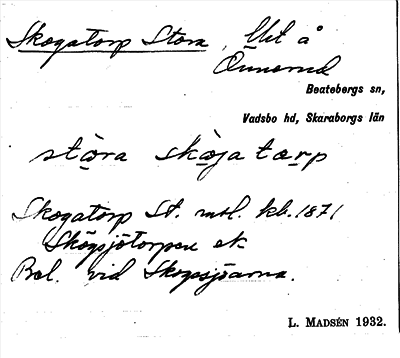 Skogatorp Stora, Utt å
Önnerud
Beatebergs sn,
Vadsbo hd, Skaraborgs län
stòra skòja tærp
Skogatorp St. msl. kb. 1871
Skògsjötorpen ek
Bel. vid Skogssjöarna.
L. MADSÉN 1932.